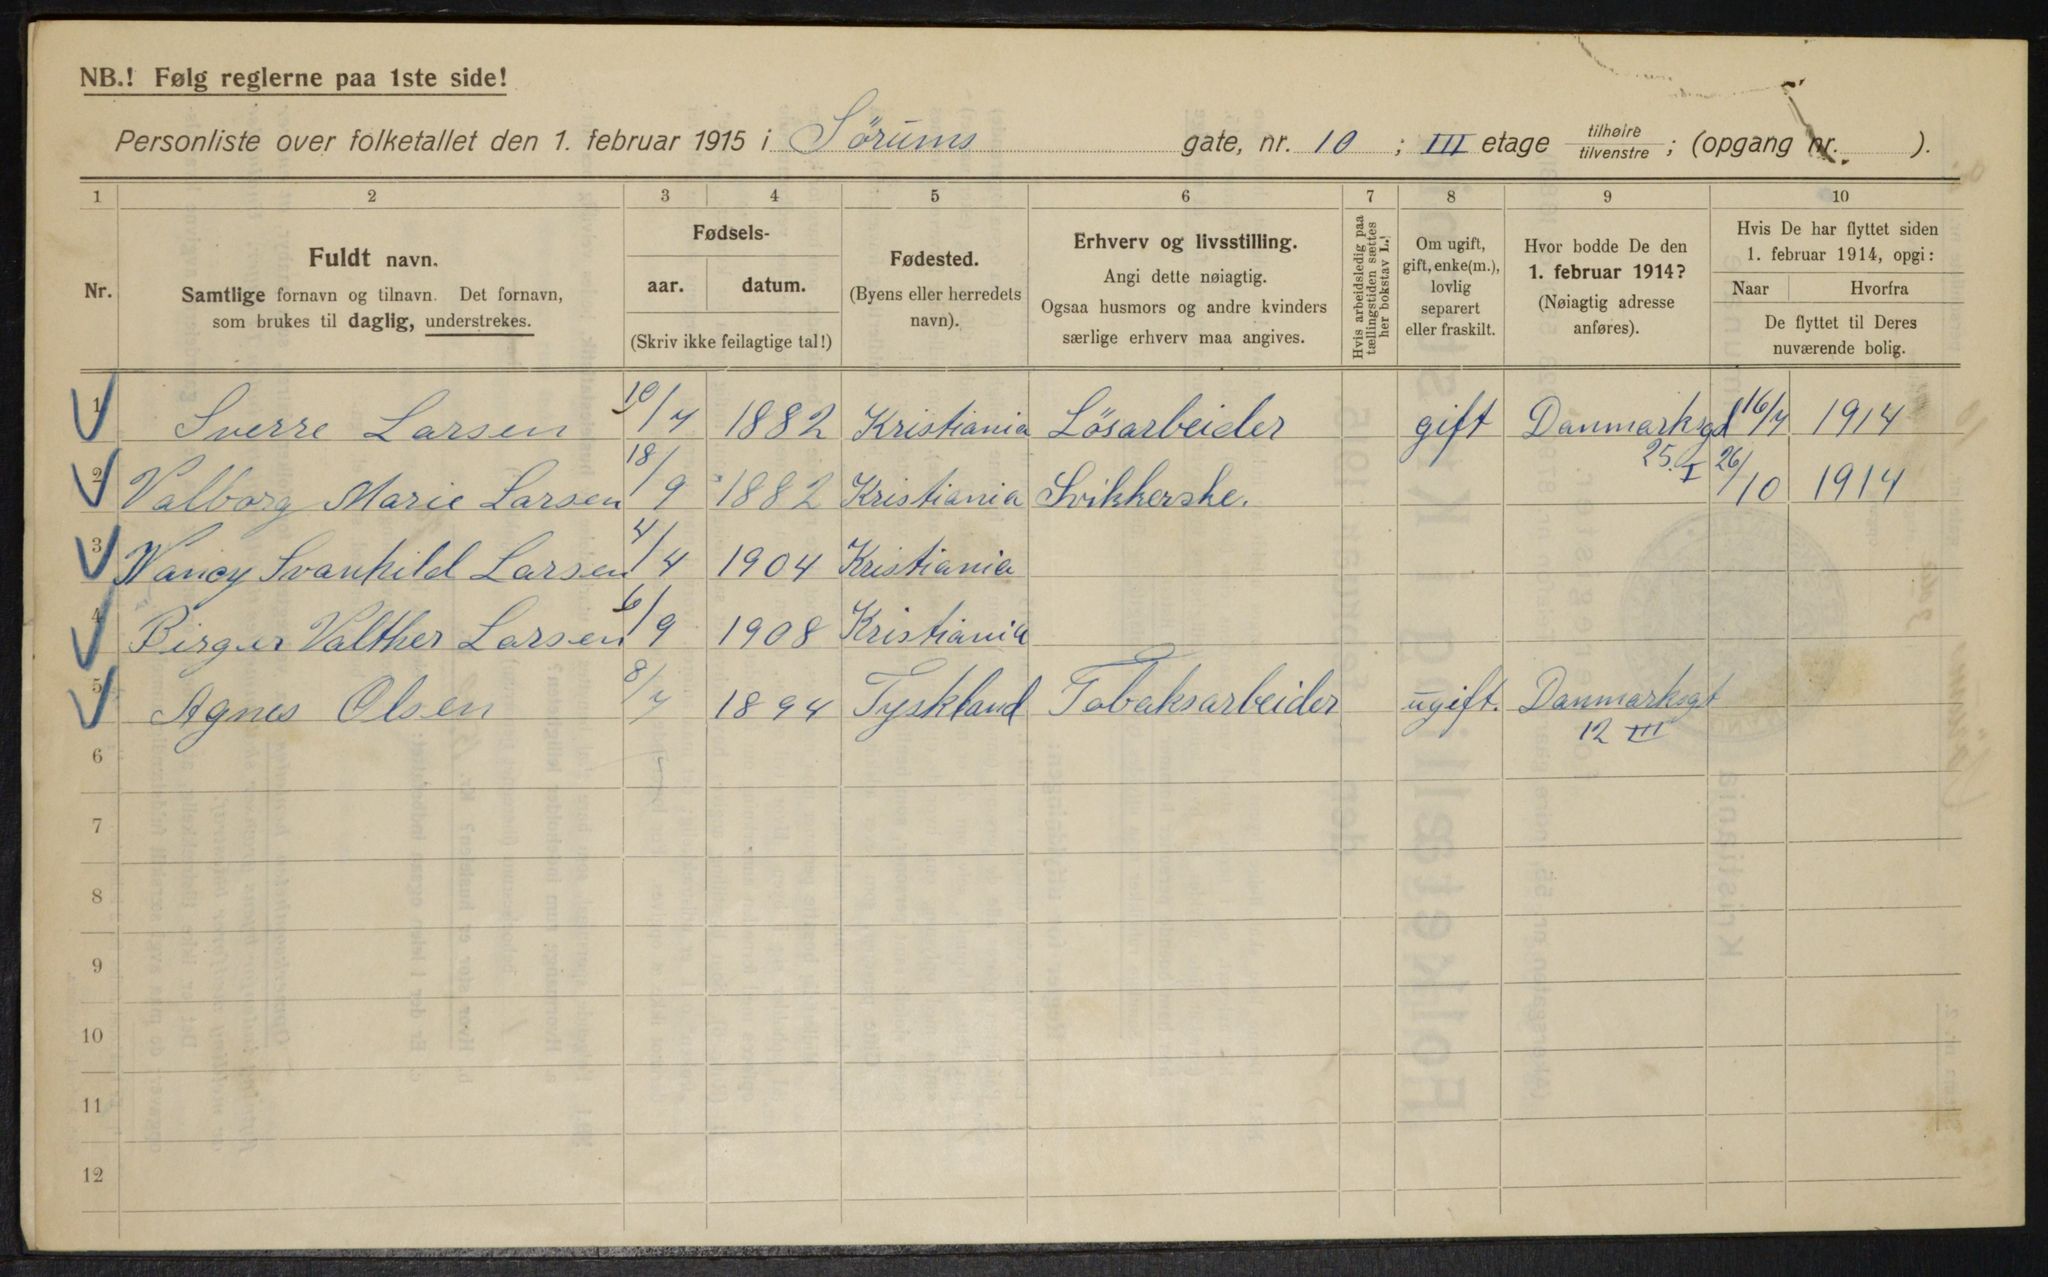 NB.! Følg reglerne paa 1ste side!
Personliste over folketallet den 1. februar 1915 i Sørums gate, nr. 10 ; III etage tilhøire tilvenstre ; (opgang nr. ).
1 2 3 4 5 6 7 8 9 10
Nr.
Fuldt navn.
Samtlige fornavn og tilnavn. Det fornavn,
som brukes til daglig, understrekes.
Fødsels-
aar. datum.
(Skriv ikke feilagtige tal!)
Fødested.
(Byens eller herredets
navn).
Erhverv og livsstilling.
Angi dette nøiagtig.
Ogsaa husmors og andre kvinders
særlige erhverv maa angives.
Hvis arbeidsledig paa
tællingstiden sættes
her bokstav L.!
Om ugift,
gift, enke(m.),
lovlig
separert
eller fraskilt.
Hvor bodde De den
1. februar 1914?
(Nøiagtig adresse
anføres).
Hvis De har flyttet siden
1. februar 1914, opgi:
Naar Hvorfra
De flyttet til Deres
nuværende bolig.
1 Sverre Larsen 10/7 1882 Kristiania Løsarbeider gift Danmarksgt 16/7 1914
25. I
2 Valborg Marie Larsen 18/9 1882 Kristiania 26/10 1914
3 Nancy Svanhild Larsen 4/4 1904 Kristiania
4 Birger Valther Larsen 6/9 1908 Kristiania
5 Agnes Olsen 8/7 1894 Tyskland Tobaksarbeider ugift. Danmarksgt
12 III
6
7
8
9
10
11
12